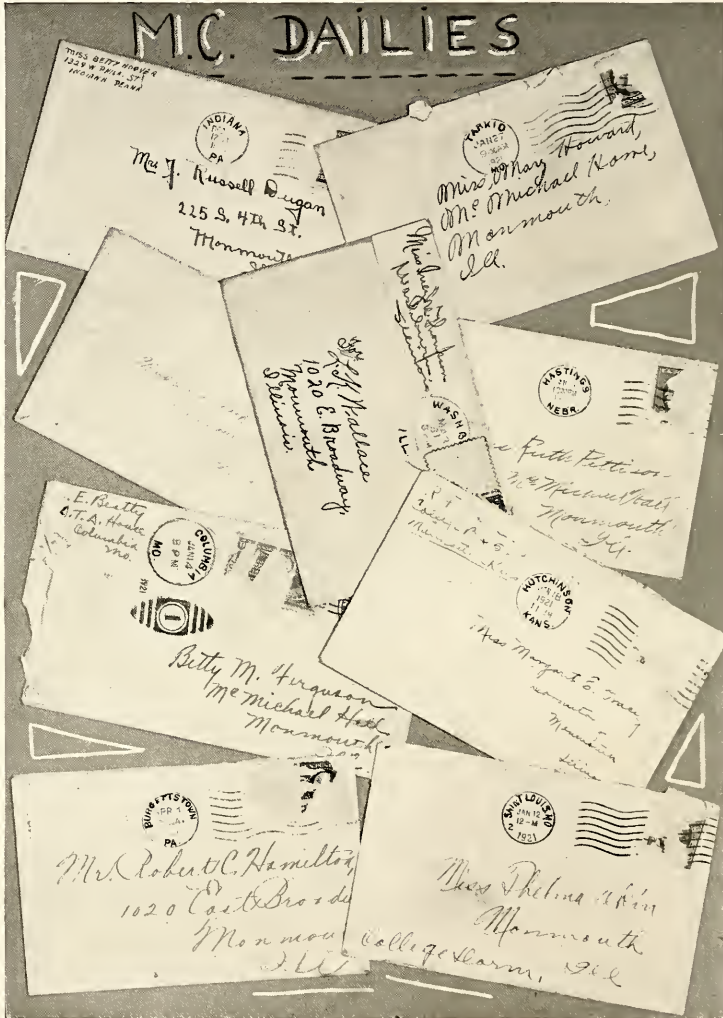 M.C. DAILIES
MISS BETTY HOOVER
1329 W PHILA. ST.
INDIANA PENNA
INDIANA
PA
Mr J. Russell Dugan
225 S. 4th St.
Monmouth
TARKIO
JAN 27
MO
Miss Mary Howard,
Mc Michael Home,
Monmouth,
Ill.
Miss
Washington
Illinois
WASHB
ILL
L. K. Wallace
1020 E. Broadway,
Monmouth
Illinois.
HASTINGS
NEBR.
Ruth Pettison
Mc Michael Hall
Monmouth
Ill.
E. Beatty
Columbia
Mo.
COLUMB
JAN 14
8 PM
MO
1921
1
Betty M. Ferguson
McMichael Hall
Monmouth
HUTCHINSON
JAN 18
1921
KANS.
Miss Margaret E. Tracy
Monmouth
BURGETTSTOWN
APR 1
PA
Mr. Robert C. Hamilton,
1020 East Broadw
Monmou
Ill
SAINT LOUIS, MO
JAN 12
12-M
2 1921
Miss Thelma
Monmouth
College Dorm, Ill